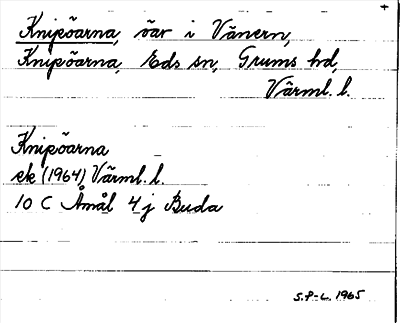 +
Knipöarna, öar i Vänern,
Knipöarna, Eds sn, Grums hd,
Värml. l.
Knipöarna
ek (1964) Värml. l.
10 C Åmål 4j Buda
S.P-L. 1965